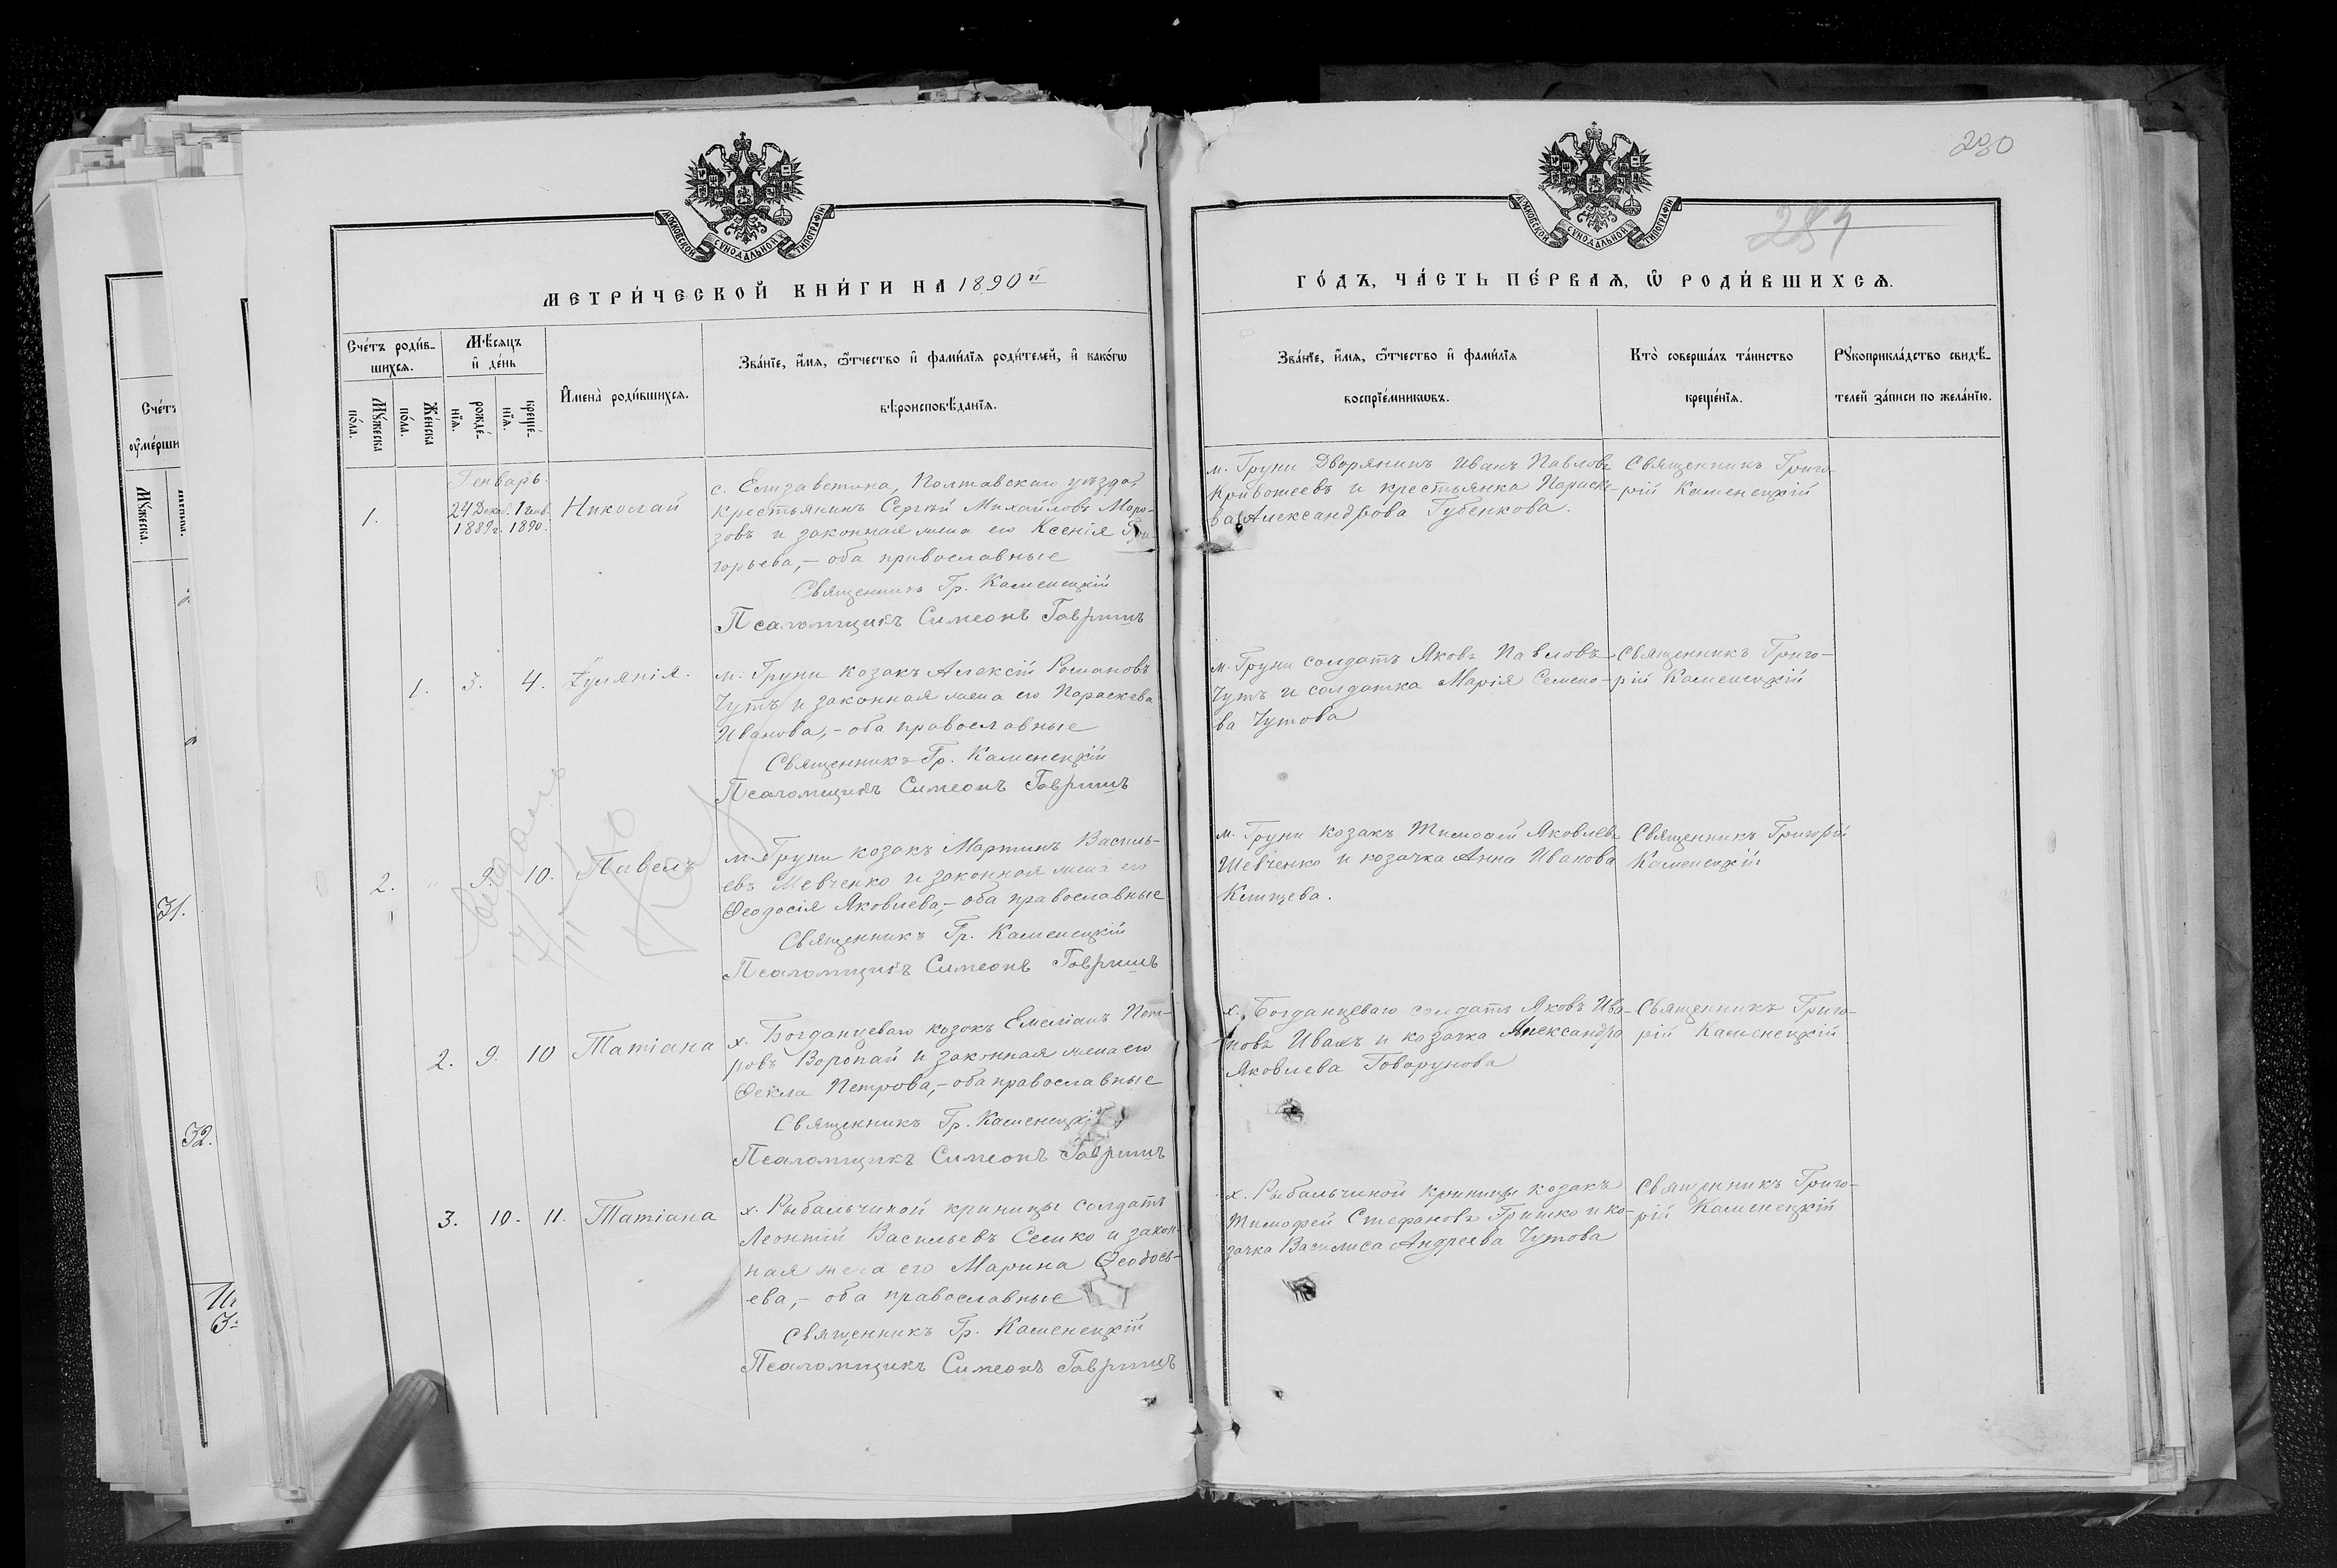 230
284
МОСКОВСКОЙ СѴНОДАЛЬНОЙ ТИПОГРАФІИ
МЕТРИ́ЧЕСКОЙ КНИ́ГИ НА 1890й
МОСКОВСКОЙ СѴНОДАЛЬНОЙ ТИПОГРАФІИ
ГО́ДЪ, ЧА́СТЬ ПЕ́РВАѦ, Ѡ РОДИ́ВШИХСѦ.
Сче́тъ роди́в-
шихсѧ.
Мꙋ́жеска
по́ла.
Же́нска
по́ла.
Мѣ́сѧцъ
и҆ де́нь
рожде́-
нїѧ.
креще́-
нїѧ.
И҆мена̀ роди́вшихсѧ.
Зва́нїе, и҆́мѧ, ѻ҆́тчество и҆ фами́лїѧ роди́телей, и҆ како́гѡ
вѣроисповѣ́данїѧ.
Зва́нїе, и҆́мѧ, ѻ҆́тчество и҆ фами́лїѧ
воспрїе́мникѡвъ.
Кто̀ соверша́лъ та́инство
креще́нїѧ.
Рꙋкоприкла́дство свидѣ́-
телей за́писи по жела́нїю.
Генварь.
1. 24 Декаб. 1 Генв. Николай
1889г. 1890.
с. Елизаветина, Полтавскаго уѣзда,
крестьянинъ Сергѣй Михайловъ Моро-
зовъ и законная жена его Ксенія Гри-
горьева,- оба православные
Священникъ Гр. Каменецкій
Псаломщикъ Симеонъ Гавришъ
м. Груни Дворянинъ Иванъ Павловъ
Кривошеевъ и крестьянка Параске-
ва Александрова Губенкова.
Священникъ Григо-
рій Каменецкій
1. 3. 4. Іуліанія.
м. Груни козакъ Алексій Романовъ
Чутъ и законная жена его Параскева
Иванова,- оба православные
Священникъ Гр. Каменецкій
Псаломщикъ Симеонъ Гавришъ
м. Груни солдатъ Яковъ Павловъ
Чутъ и солдатка Марія Семено-
ва Чутова
Священникъ Григо-
рій Каменецкій
2. " 9. 10. Павелъ
м. Груни козакъ Мартинъ Василь-
евъ Шевченко и законная жена его
Ѳеодосія Яковлева,- оба православные
Священникъ Гр. Каменецкій
Псаломщикъ Симеонъ Гавришъ
м. Груни козакъ Тимофей Яковлевъ
Шевченко и козачка Анна Иванова
Клитцева.
Священникъ Григорій
Каменецкій
2. 9. 10 Татіана
х. Богданцеваго козакъ Емеліанъ Пет-
ровъ Воропай и законная жена его
Ѳекла Петрова,- оба православные
Священникъ Гр. Каменецкій
Псаломщикъ Симеонъ Гавришъ
х. Богданцеваго солдатъ Яковъ Ива-
новъ Ивахъ и козачка Александра
Яковлева Говорунова
Священникъ Григо-
рій Каменецкій
3. 10. 11. Татіана
х. Рыбальчиной криницы солдатъ
Леонтій Васильевъ Сешко и закон-
ная жена его Марина Ѳеодось-
ева,- оба православные
Священникъ Гр. Каменецкій
Псаломщикъ Симеонъ Гавришъ
х. Рыбальчиной криницы козакъ
Тимофей Стефановъ Гришко и ко-
зачка Василиса Андреева Чутова
Священникъ Григо-
рій Каменецкій
Сче́тъ
ѹ҆ме́рши
Мꙋ́жеска.
31.
32.